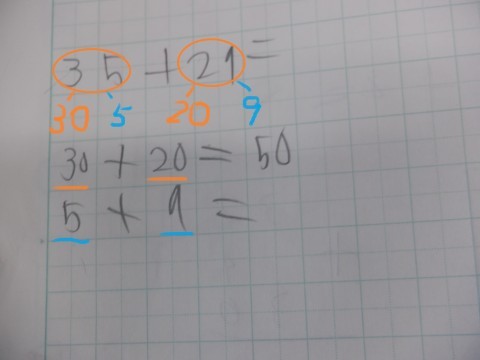 35 + 29 =
30 5 20 9
30 + 20 = 50
5 + 9 =